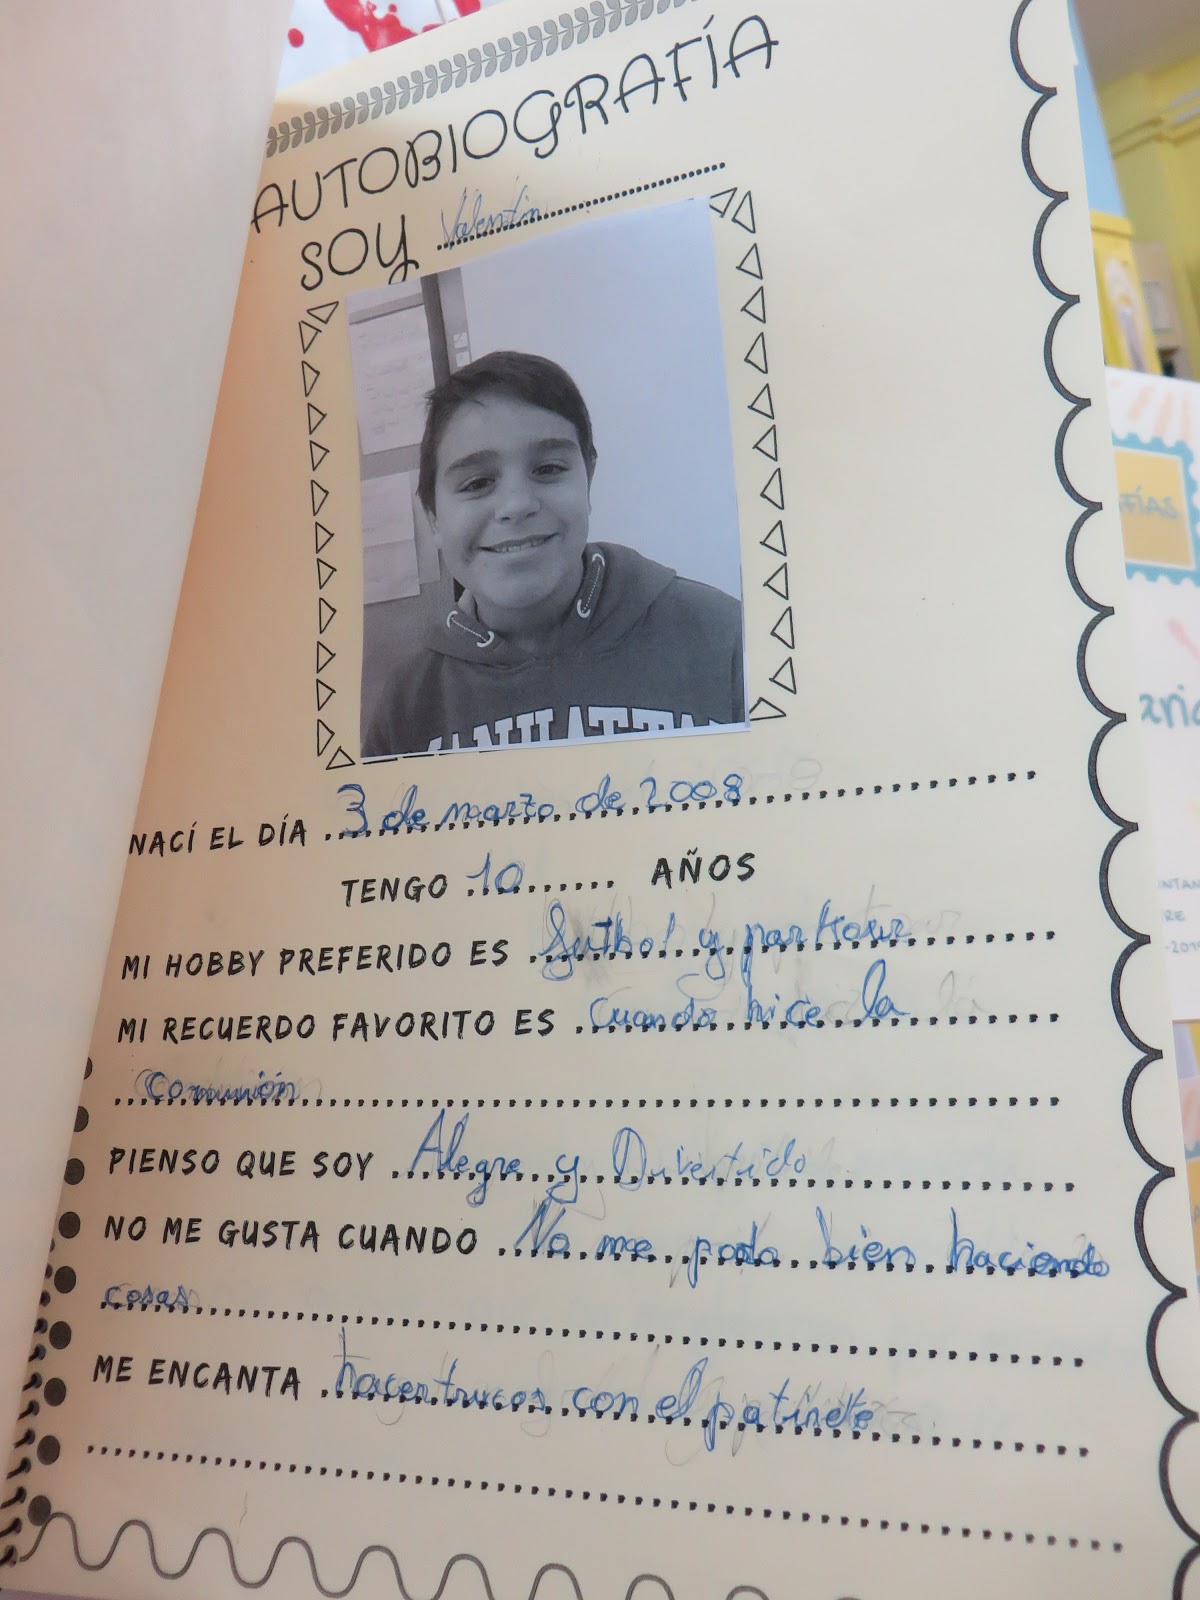 AUTOBIOGRAFÍA
SOY Valentin
NACÍ EL DÍA 3 de marzo de 2008
TENGO 10 AÑOS
MI HOBBY PREFERIDO ES futbol y parkour
MI RECUERDO FAVORITO ES Cuando hice la
Comunión
PIENSO QUE SOY Alegre y Divertido
NO ME GUSTA CUANDO No me porto bien haciendo
cosas
ME ENCANTA hacer trucos con el patinete